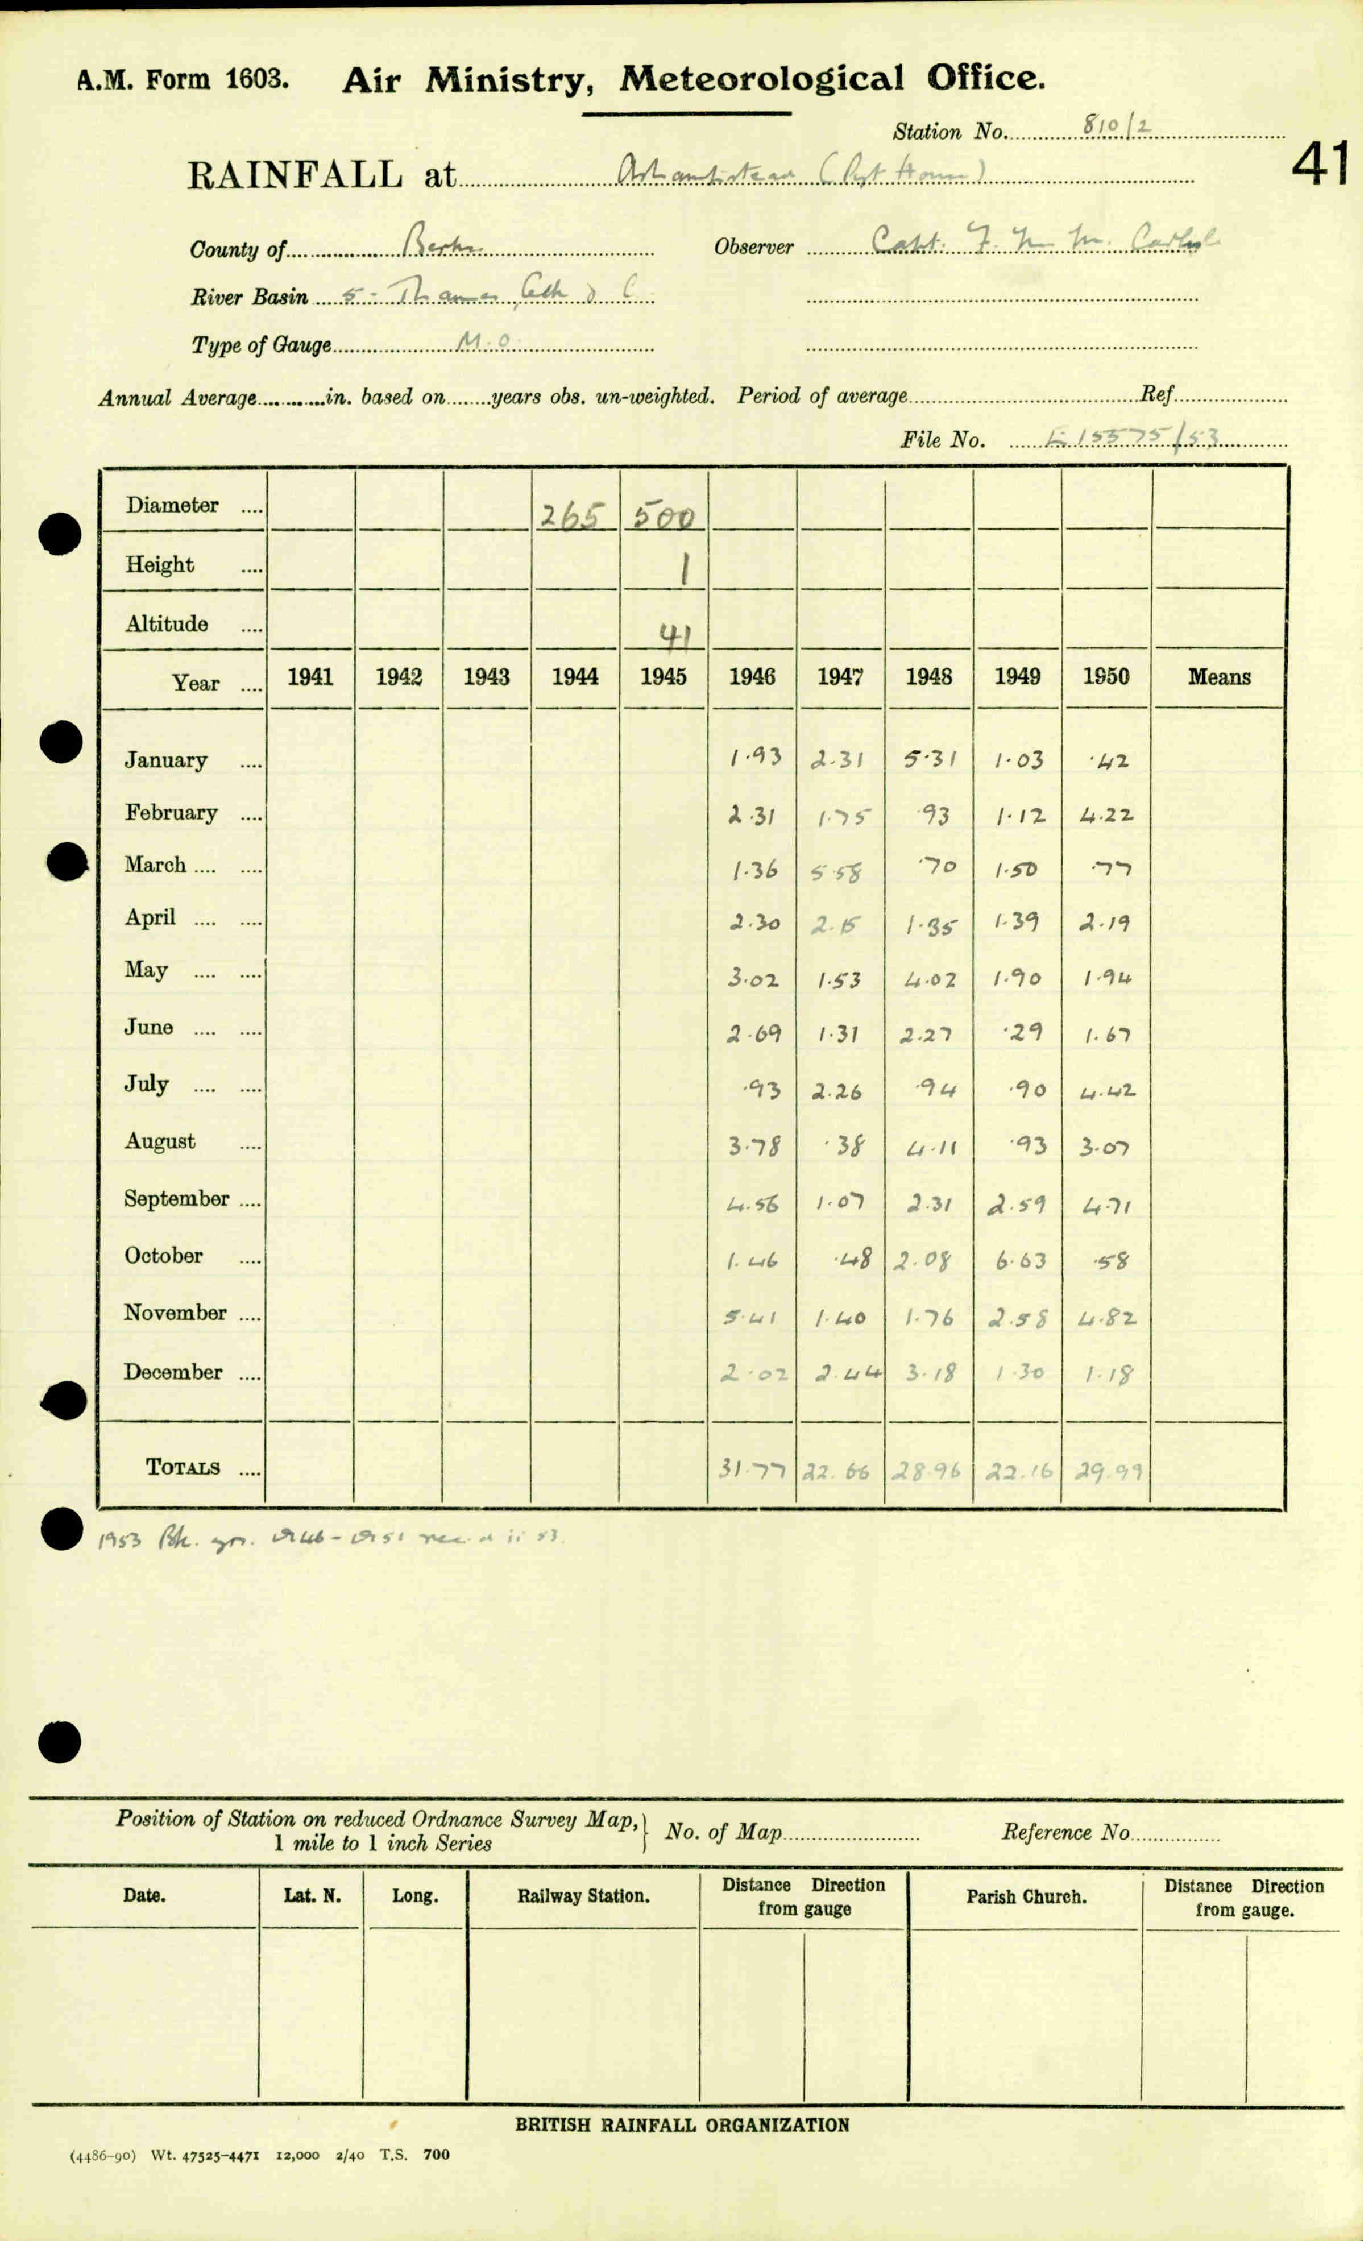 A.M. Form 1603. Air Ministry, Meteorological Office.
Station No. 810/2
41
RAINFALL at (Pyt House)
County of Berks. Observer Capt. F. M. M. Carlisle
River Basin 5 - Thames
Type of Gauge M.O.
Annual Average in. based on years obs. un-weighted. Period of average Ref
File No. 15575/53
Diameter .... 265 500
Height .... 1
Altitude .... 41
Year .... 1941 1942 1943 1944 1945 1946 1947 1948 1949 1950 Means
January .... 1.93 2.31 5.31 1.03 .42
February .... 2.31 1.75 .93 1.12 4.22
March .... .... 1.36 5.58 .70 1.50 .77
April .... .... 2.30 2.15 1.35 1.39 2.19
May .... .... 3.02 1.53 4.02 1.90 1.94
June .... .... 2.69 1.31 2.27 .29 1.67
July .... .... .93 2.26 .94 .90 4.42
August .... 3.78 .38 4.11 .93 3.07
September .... 4.56 1.07 2.31 2.59 4.71
October .... 1.46 .48 2.08 6.63 .58
November .... 5.41 1.40 1.76 2.58 4.82
December .... 2.02 2.44 3.18 1.30 1.18
TOTALS .... 31.77 22.66 28.96 22.16 29.99
1953 Bk. yrs. 1946-1951 rec. d ii 53.
Position of Station on reduced Ordnance Survey Map,} No. of Map Reference No
1 mile to 1 inch Series
Date. Lat. N. Long. Railway Station. Distance Direction from gauge Parish Church. Distance Direction from gauge.
BRITISH RAINFALL ORGANIZATION
(4486-90) Wt. 47525-4471 12,000 2/40 T.S. 700